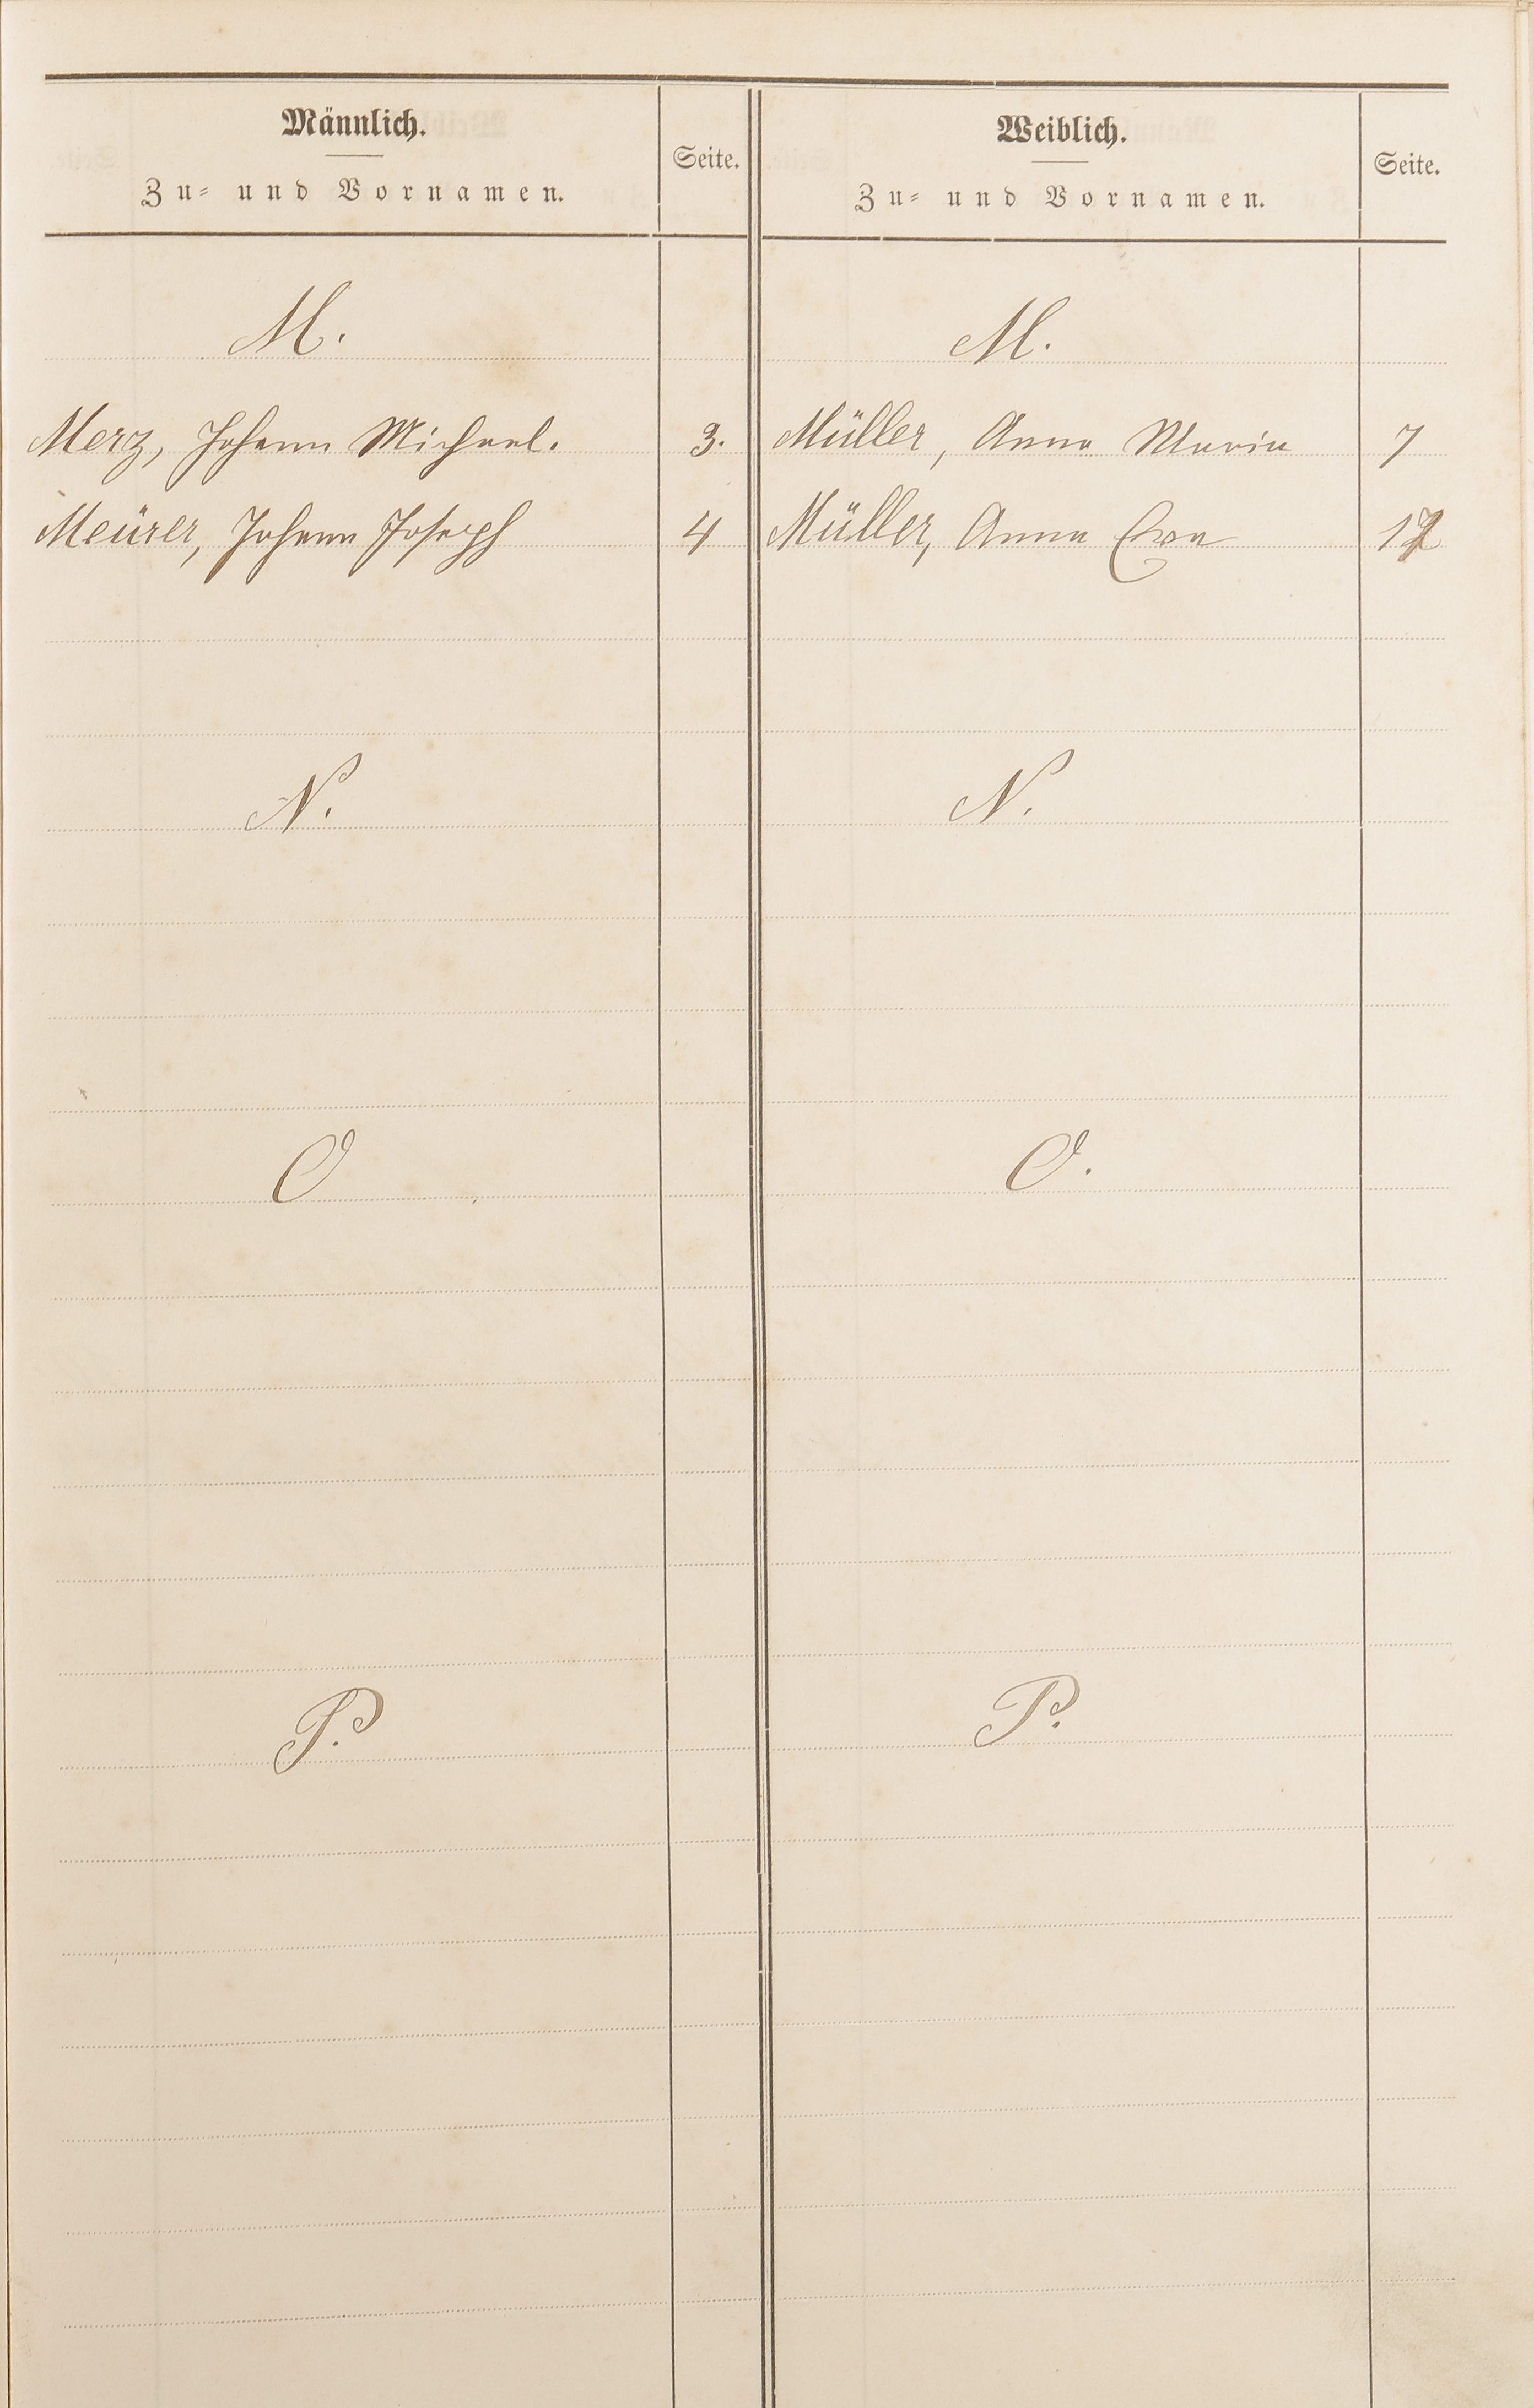 Männlich.
Zu- und Vornamen.
Seite.
Weiblich.
Zu- und Vornamen.
Seite.
M.
M.
Merz, Johann Michael.
3.
Müller, Anna Maria
7
Meürer, Johann Joseph
4
Müller, Anna Eva
N.
N.
O
O.
P.
P.